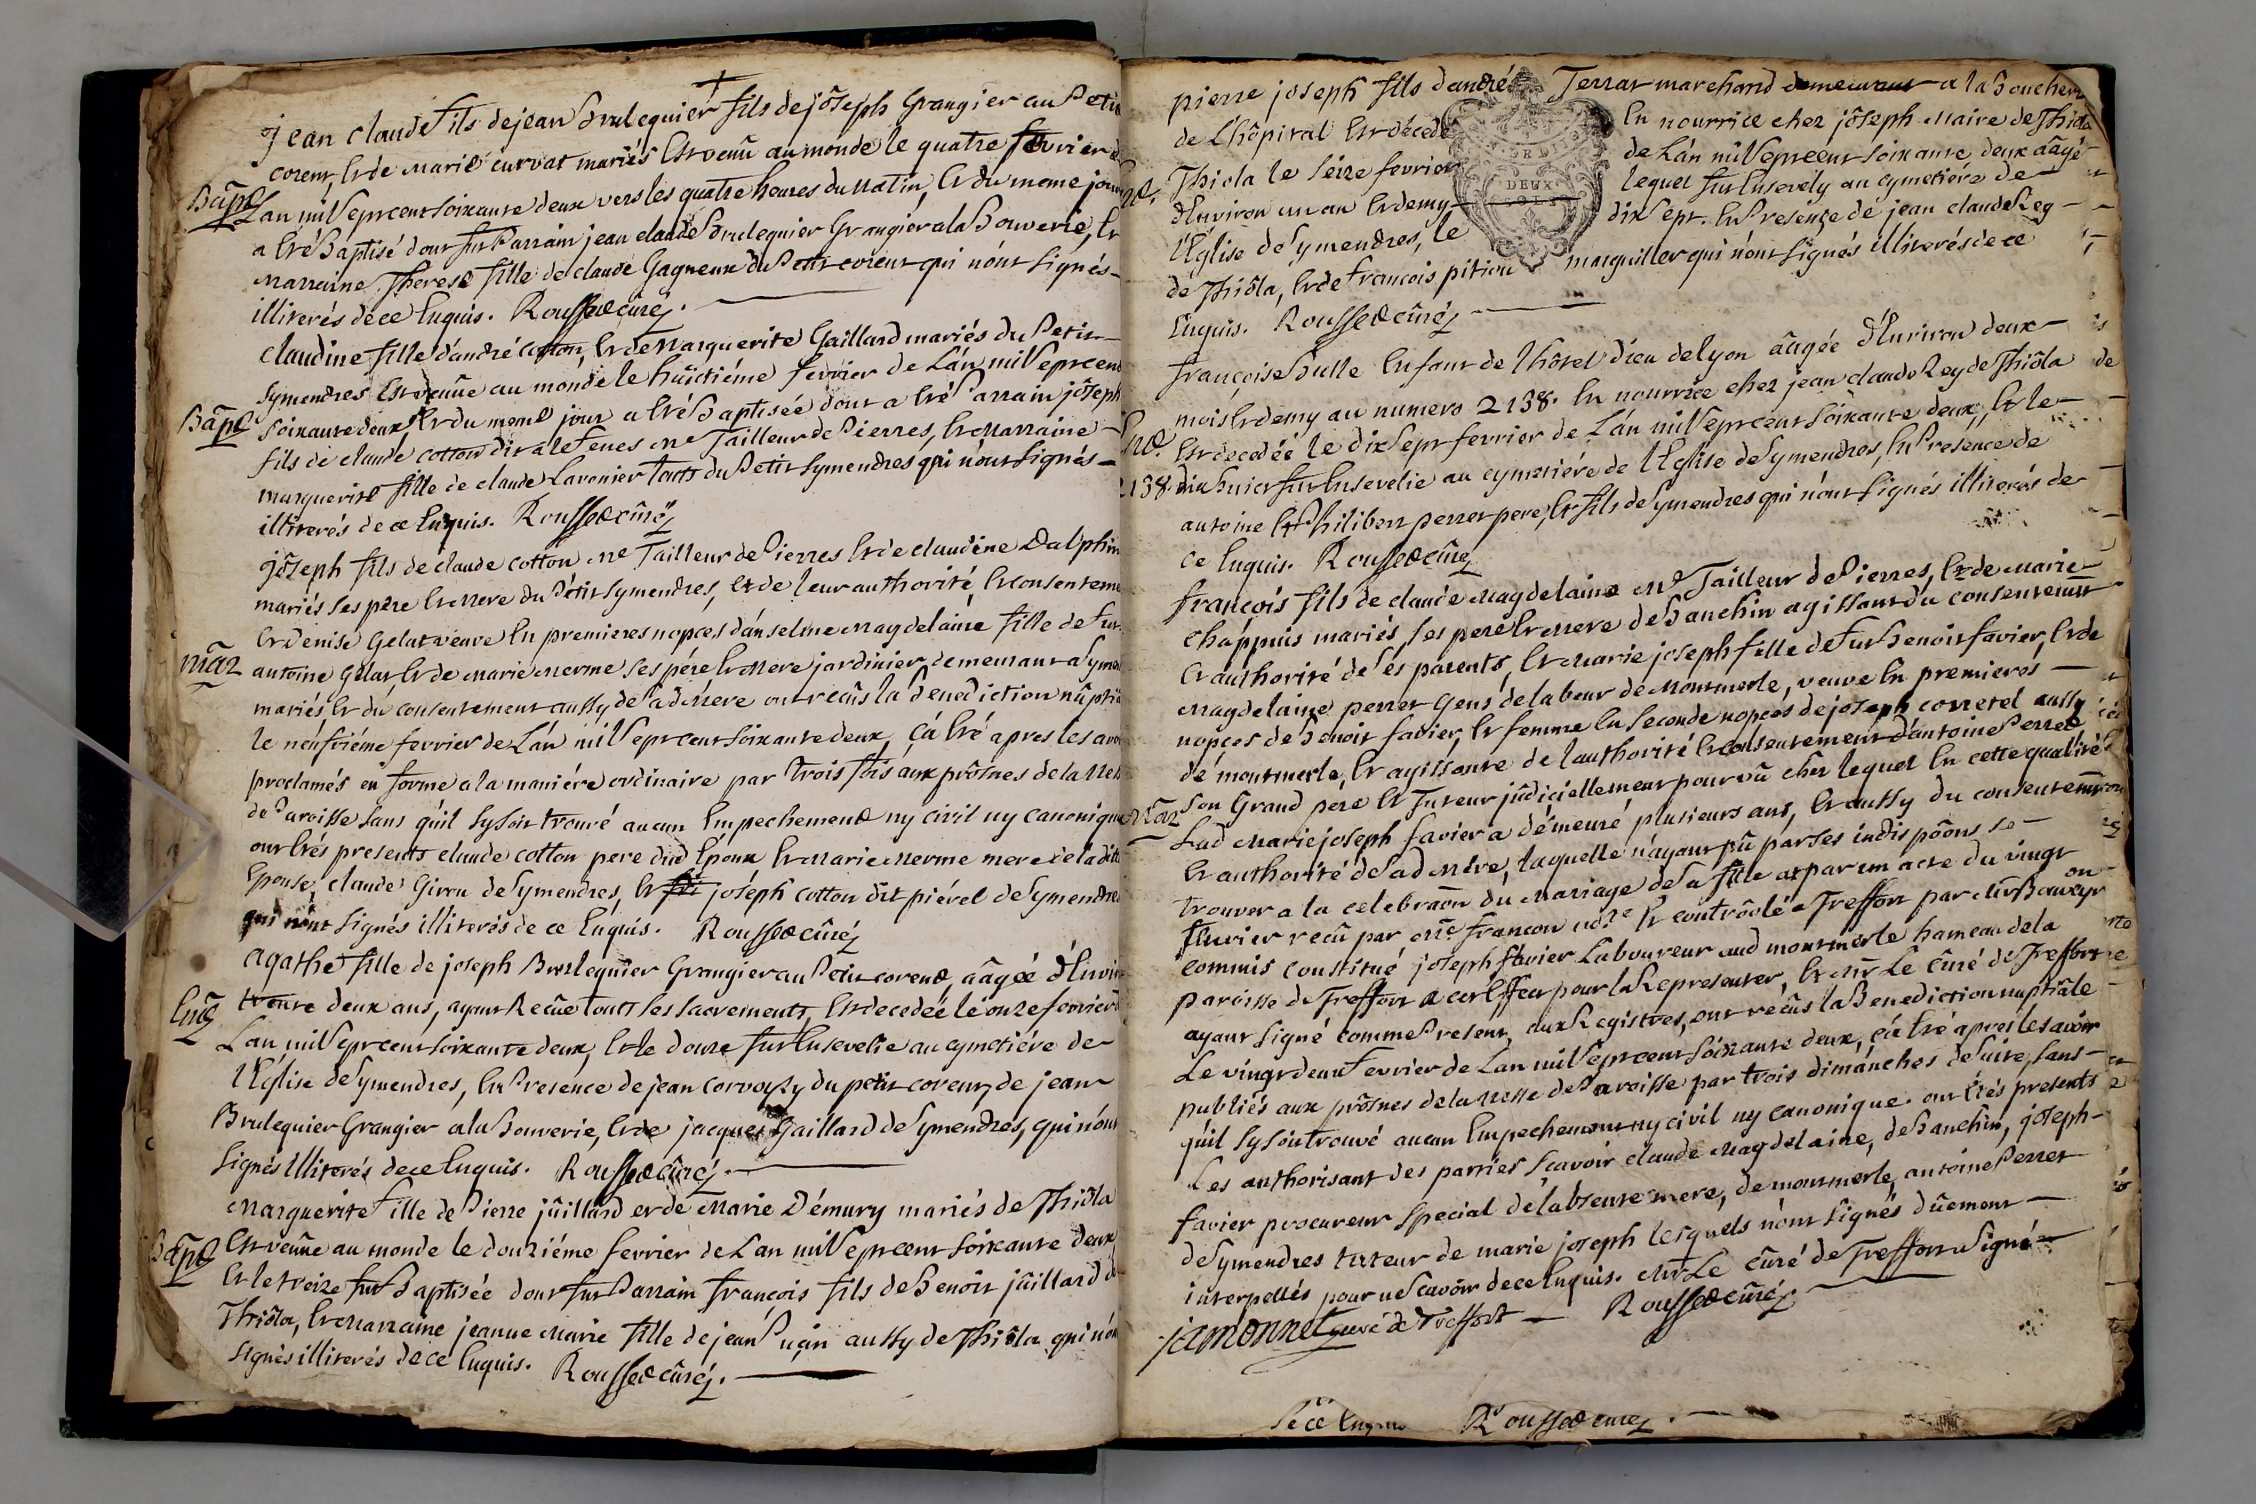 Jean claude fils de jean Brulequier fils de jôseph Grangier au Petit
corent, et de Marie curvat mariés Est venû au monde le quatre fevrier de
Bãpt
Lan mil sept cent soixante deux vers les quatre heures du Matin, et du meme jour
a Eté Baptisé dont fut Parrain jean claude Brulequier Grangier a la Bouverie, Et
Marraine Therese fille de claude Gagneux du Petit corent qui n'ont signés
illiterés de ce Enquis. Rousset curé
claudine fille d'andré cotton, Et de Marguerite Gaillard mariés du Petit
Symendres Est venûe au monde le hüictiéme fevrier de Lán mil sept cent
Bãpt
soixante deux, Et du meme jour a Eté Baptisée dont a Eté Parrain jôseph
fils de claude cotton dit a le Tenes me Tailleur de Pierres, Et Marraine
marguerite fille de claude Lavenier touts du Petit Symendres qui n'ont signés
illiterés de ce Enquis. Rousset curé
jôseph fils de claude cotton me Tailleur de Pierres Et de claudine Dalphin
mariés ses père Et Mere du Pétit Symendres, et de leur authorité, Et consentement
Et denise Gelat veuve En premieres nopces d'anselme Magdelaine fille de fut
mãr
antoine Gelat, Et de marie Merme ses pére, Et Mere jardinier demeurant a Symendres
mariés, Et du consentement aussy de sad Mere ont recûs la Benediction nûptiale
le neufviéme fevrier de Lán mil sept cent soixante deux, çá Eté apres les avoir
proclamés en forme a la maniére ordinaire par trois fois aux prônes de la Messe
de Paroisse sans qu'il sy soit trouvé aucun Empechement ny civil ny canonique
ont Etés presents claude cotton pere dud Epoux Et Marie Merme mere de la ditte
Epouse, claude Girou de Symendres, Et joséph cotton dit piérel de Symendres
qui n'ont signés illiterés de ce Enquis. Rousset curé
Agathe fille de joseph Brulequier Grangier au Petit corent, aâgée d'Environ
Ent
trente deux ans, ayant Recûe touts les sacrements, Est decedée le onze fevrier
Lan mil sept cent soixante deux, Et le douze fut Ensevelie au cymetiére de
l'Eglise de Symendres, En Presence de jean corvoysy du petit corent, de jean
Brulequier Grangier a la Bouverie, Et de jacques Gaillard de Symendres, qui n'ont
signés illiterés de ce Enquis. Rousset curé
Marguerite fille de Pierre jûillard et de Marie Démury mariés de Thiôla
Bãpt
Est venûe au monde le douziéme fevrier de Lan mil sept cent soixante deux
Et le treize fut Baptisée dont fut Parrain francois fils de Benoît jûillard de
Thiôla, Et Marraine jeanne Marie fille de jean Puçin aussy de Thiôla qui n'ont
signés illiterés de ce Enquis. Rousset curé
pierre joseph fils dandré Terrat marchand demeurant a la Boucherie
de L'hôpital Est décedé En nourrice chez jôseph Maire de Thiola
DEUX SOLS
Thiola le séize fevrier de Lán mil sept cent soixante deux aagé
d'Environ un an Et demy lequel fut Ensevely au cymetiére de
l'Eglise de Symendres, le dix sept. En Presençe de jean claude Rey
de Thiôla, Et de francois pition marguiller qui n'ont signés illiterés de ce
Enquis. Rousset curé
françoise Bulle Enfant de l'hôtel Dieu de lyon aâgée d'Environ deux
mois Et demy au numero 2138. En nourrice chez jean claude Rey de Thiôla
Est decedée le dix sept fevrier de Lán mil sept cent soixante deux, Et le
2138.
dix huict fut Ensevelie au cymetiére de l'Eglise de Symendres, En Presence de
antoine Et Philibert perret pere, Et fils de Symendres qui n'ont signés illiterés de
ce Enquis. Rousset curé
françois fils de claude Magdelaine Me Tailleur de Pierres, Et de Marie
chappuis mariés, ses pere Et Mere de Banchin agissant du consentemt
Et authorité de ses parents, Et Marie joseph fille de fut Benoît favier, Et de
Magdelaine perret Gens de labeur de Montmerle, veuve En premieres
nopces de Benoit favier, Et femme En seconde nopces de joseph correrd aussy
de montmerle, Et agissante de l'authorité Et consentement d'antoine Perret
mãr
son Grand pére Et Tuteur jûdiciellement pourvû chez lequel En cette qualité
Lad Marie joseph favier a démeuré plusieurs ans, Et aussy du consentemt
Et authorité de sad Mére, laquelle n'ayant pû par ses indispôons se
trouver a la celebraôn du Mariage de sa fille at par un acte du vingt
fevrier recû par Me francon Nore Et contrôolé a Treffort par
commis constitué joseph favier Laboureur aud montmerle hameau de la
paroisse de Treffort a cet Effect pour la Representer, Et Mr Le Cûré de Treffort
ayant signé comme Present aux Registres, ont recûs la Benediction nuptiale
Le vingt deux Fevrier de Lan mil sept cent soixante deux, çá Eté apres les avoir
publiés aux prônes de la Messe de Paroisse par trois dimánches de suite, sans
qu'il sy soit trouvé aucun Empechement ny civil ny canonique. ont Etés presents
Les authorisant des parties scavoir claude Magdelaine, de Banchin, joseph
favier procureur special de labsente mere, de montmerle, antoine Perret
de Symendres tuteur de marie joseph lesquels n'ont signés dûement
interpellés pour ne scavoir de ce Enquis. Mr Le Cûré de Treffort a signé
jamonnet curé de Treffort Rousset curé
de ce Enquis Rousset curé